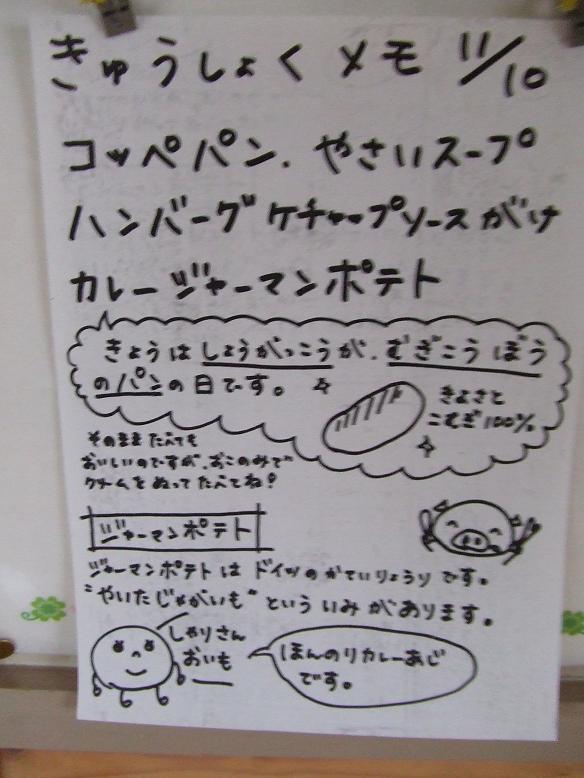 きゅうしょくメモ 11/10
コッペパン. やさいスープ
ハンバーグケチャップソースがけ
カレージャーマンポテト
きょうは しょうがっこうが、むぎこうぼう
のパンの日です。
きよさと
こむぎ100%
そのままたべても
おいしいのですが、おこのみで
クリームをぬってたべてね!
ジャーマンポテト
ジャーマンポテトは ドイツのかていりょうりです。
"やいたじゃがいも"という いみがあります。
しゃりさん
おいも
ほんのりカレーあじ
です。